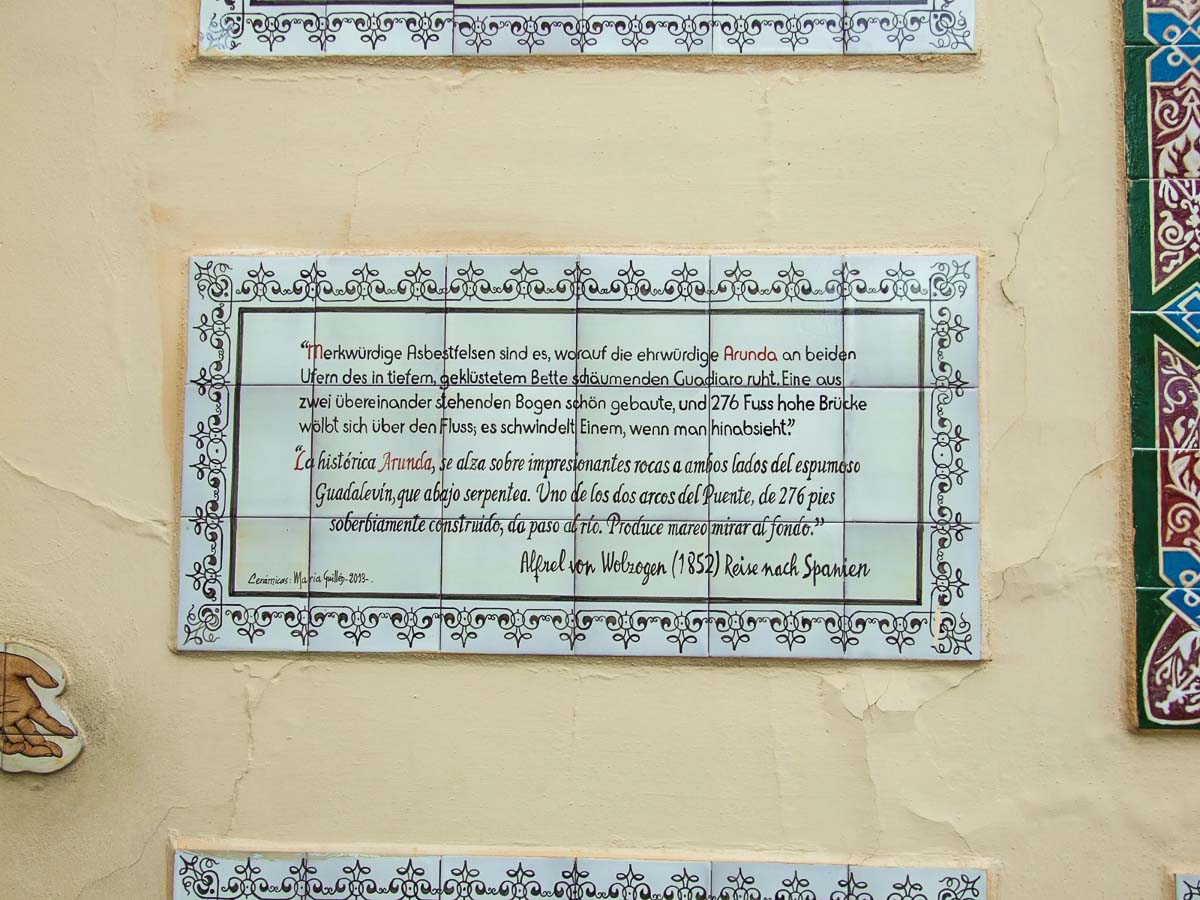 “Merkwürdige Asbestfelsen sind es, worauf die ehrwürdige Arunda an beiden
Ufern des in tiefem, geklüstetem Bette schäumenden Guadiaro ruht. Eine aus
zwei übereinander stehenden Bogen schön gebaute, und 276 Fuss hohe Brücke
wölbt sich über den Fluss; es schwindelt Einem, wenn man hinabsieht.”
“La histórica Arunda, se alza sobre impresionantes rocas a ambos lados del espumoso
Guadalevín, que abajo serpentea. Uno de los dos arcos del Puente, de 276 pies
soberbiamente construido, da paso al río. Produce mareo mirar al fondo.”
Alfred von Wolzogen (1852) Reise nach Spanien
Cerámicas: María Guillén-2013-.